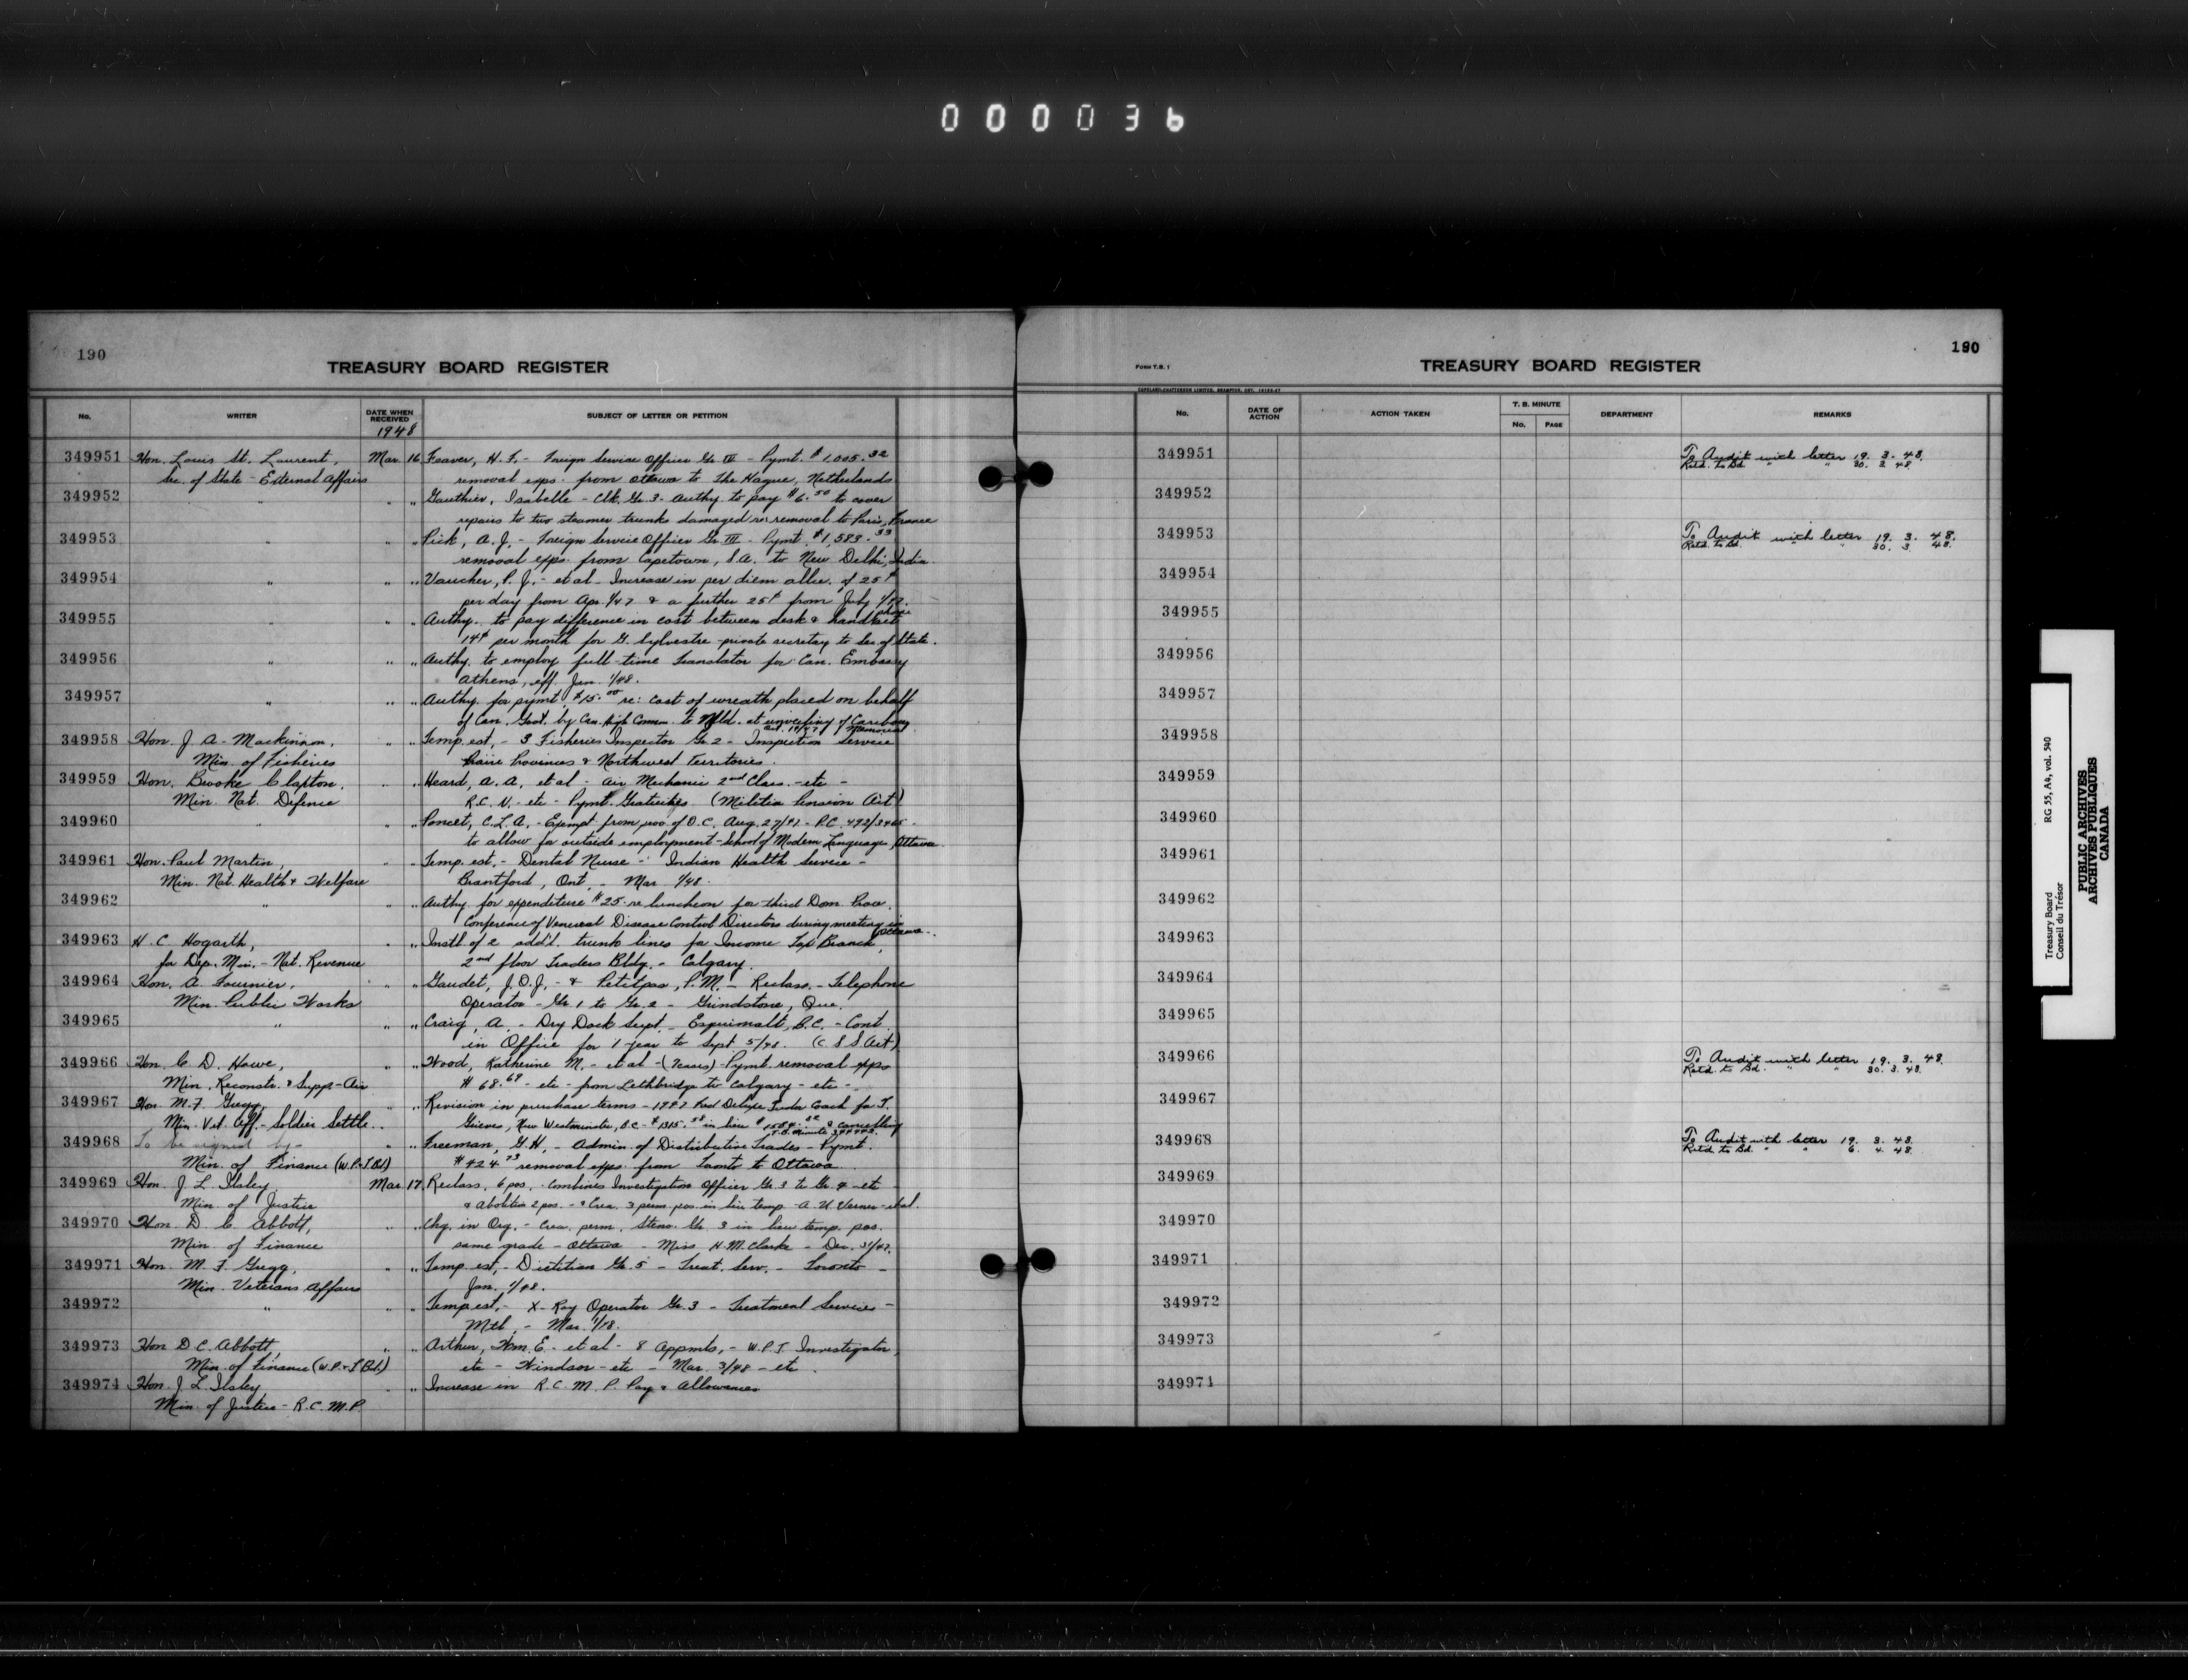 000036
190
TREASURY BOARD REGISTER
No. WRITER DATE WHEN RECEIVED SUBJECT OF LETTER OR PETITION
1948
349951 Hon. Louis St. Laurent, Mar. 16 Feaver, H. F. - Foreign Service Officer Gr. IV - Pymt. $1,005.32
Sec. of State - External Affairs removal exps. from Ottawa to The Hague, Netherlands
349952 " " " Gauthier, Isabelle - Clk. Gr. 3 - Authy. to pay $6.50 to cover
repairs to two steamer trunks damaged re: removal to Paris, France
349953 " " " Pick, A. J. - Foreign Service Officer Gr. III - Pymt. $1,583.33
removal exps. from Capetown, S.A. to New Delhi, India
349954 " " " Vaucher, P. J. - et al - Increase in per diem allce. of 25¢
per day from Apr. 1/47 & a further 25¢ from July 1/47.
349955 " " " Authy. to pay difference in cost between desk & handset phone
14¢ per month for G. Sylvestre - private secretary to Sec. of State.
349956 " " " Authy. to employ full-time translator for Can. Embassy
Athens, eff. Jan. 1/48.
349957 " " " Authy. for pymt. $15.00 re: cost of wreath placed on behalf
of Can. Govt. by Can. High Comm. to Nfld. at unveiling of Caribou Memorial
349958 Hon. J. A. Mackinnon, " " Temp. est. - 3 Fisheries Inspector Gr. 2 - Inspection Service
Min. of Fisheries Prairie Provinces & Northwest Territories.
349959 Hon. Brooke Claxton, " " Heard, A. A. et al - Air Mechanic 2nd Class. - etc -
Min. Nat. Defence R.C.N. - etc - Pymt. Gratuities (Militia Pension Act)
349960 " " " Poncet, C. L. A. - Exempt from proo of O.C. Aug. 27/41 - P.C.
to allow for outside employment - School of Modern Language, Ottawa
349961 Hon. Paul Martin, " " Temp. est. - Dental Nurse - Indian Health Service -
Min. Nat. Health & Welfare Brantford, Ont. - Mar. 1/48.
349962 " " " Authy. for expenditure $25 - re luncheon for third Dom. Prov.
Conference of Venereal Disease Control Directors during meeting in Ottawa.
349963 H. C. Hogarth, " " Instl. of 2 add'l. trunk lines for Income Tax Branch,
for Dep. Min. - Nat. Revenue 2nd floor Traders Bldg. - Calgary.
349964 Hon. A. Fournier, " " Gaudet, J.O.J. - & Petitpas, P.M. - Reclass. - Telephone
Min. Public Works Operator - Gr. 1 to Gr. 2 - Grindstone, Que.
349965 " " " Craig, A. - Dry Dock Supt. - Esquimalt, B.C. - Cont.
in Office for 1 year to Sept 5/48. (C.S.S Act)
349966 Hon. C. D. Howe, " " Wood, Katherine M. - et al - (7 cases) - Pymt. removal exps
Min. Reconstr. & Supp - Air $68.69 - etc - from Lethbridge to Calgary - etc -
349967 Hon. M. F. Gregg, " " Revision in purchase terms - 1947 Ford Deluxe Tudor Coach for T.
Min. Vet. Aff. - Soldier Settle. Grieves, New Westminster, B.C. - $1315.58 in lieu & cancelling T.B. Minute
349968 To be signed by - " " Freeman, G. H. - Admin. of Distributive Trades - Pymt.
Min. of Finance (W.P.&T.Bd) $424.73 removal exps. from Toronto to Ottawa.
349969 Hon. J. L. Ilsley, Mar. 17 Reclass. 6 pos. - Combines Investigation Officer Gr. 3 to Gr. 4 - etc
Min. of Justice & Abolition 2 pos. - & Crea. 3 perm. pos. in lieu temp - A. U. Verner - et al.
349970 Hon. D. C. Abbott, " " Chg. in Org. - Crea. perm. Steno. Gr. 3 in lieu temp. pos.
Min. of Finance same grade - Ottawa - Miss H. M. Clarke - Dec. 31/47.
349971 Hon. M. F. Gregg, " " Temp. est. - Dietitian Gr. 5 - Treat. Serv. - Toronto -
Min. Veterans Affairs Jan. 1/48.
349972 " " " Temp. est. - X-Ray Operator Gr. 3 - Treatment Services -
Mtl. - Mar. 1/48.
349973 Hon D. C. Abbott, " " Arthur, Wm. E. - et al - 8 Appmts. - W.P.T. Investigator,
Min. of Finance (W.P.&T.Bd) etc - Windsor - etc - Mar. 3/48 - etc.
349974 Hon. J. L. Ilsley " " Increase in R.C.M.P. Pay & Allowances
Min. of Justice - R.C.M.P.
190
FORM T.B. 1
TREASURY BOARD REGISTER
COPELAND-CHATTERSON LIMITED, BRAMPTON, ONT.
No. DATE OF ACTION ACTION TAKEN T. B. MINUTE No. PAGE DEPARTMENT REMARKS
349951 To Audit with letter 19. 3. 48.
Retd. to Bd. " " 30. 3. 48.
349952
349953 To Audit with letter 19. 3. 48.
Retd. to Bd. " " 30. 3. 48.
349954
349955
349956
349957
349958
349959
349960
349961
349962
349963
349964
349965
349966 To Audit with letter 19. 3. 48.
Retd. to Bd. " " 30. 3. 48.
349967
349968 To Audit with letter 19. 3. 48.
Retd. to Bd. " " 6. 4. 48.
349969
349970
349971
349972
349973
349971
Treasury Board RG 55, A4, vol. 540
Conseil du Trésor
PUBLIC ARCHIVES
ARCHIVES PUBLIQUES
CANADA